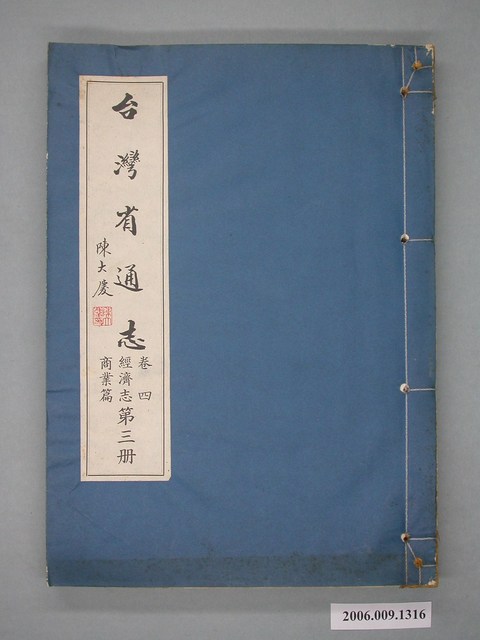 台灣省通志
陳大慶
卷四
經濟志第三册
商業篇
2006.009.1316